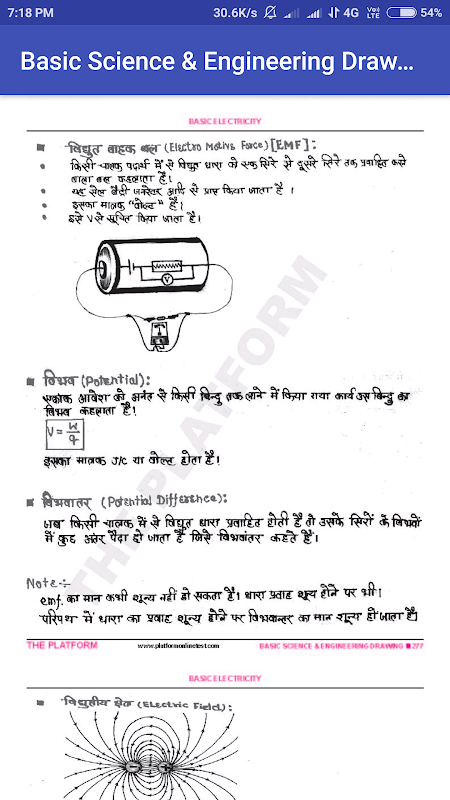 7:18 PM 30.6K/S 4G VoLTE 54%
Basic Science & Engineering Draw...
BASIC ELECTRICITY
विद्युत वाहक बल (Electro Motive Force) [EMF]:
किसी चालक पदार्थ में से विद्युत धारा को एक सिरे से दूसरे सिरे तक प्रवाहित करने
वाला बल कहलाता है।
यह सेल बैट्री जनरेटर आदि से प्राप्त किया जाता है ।
इसका मात्रक "वोल्ट" है।
इसे V से सूचित किया जाता है।
V
THE PLATFORM
विभव (Potential):
एकांक आवेश को अनंत से किसी बिन्दु तक लाने में किया गया कार्य उस बिन्दु का
विभव कहलाता है।
V = W/q
इसका मात्रक J/C या वोल्ट होता है।
THE PLATFORM
विभवांतर (Potential Difference):
जब किसी चालक में से विद्युत धारा प्रवाहित होती है तो उसके सिरों के विभवों
में कुछ अंतर पैदा हो जाता है जिसे विभवांतर कहते हैं।
Note:-
emf. का मान कभी शून्य नहीं हो सकता है। धारा प्रवाह शून्य होने पर भी।
परिपथ में धारा का प्रवाह शून्य होने पर विभवान्तर का मान शून्य हो जाता है।
THE PLATFORM www.platformonlinetest.com BASIC SCIENCE & ENGINEERING DRAWING 277
BASIC ELECTRICITY
विद्युतीय क्षेत्र (Electric Field):